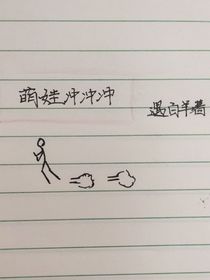 萌娃冲冲冲
遇白羊着